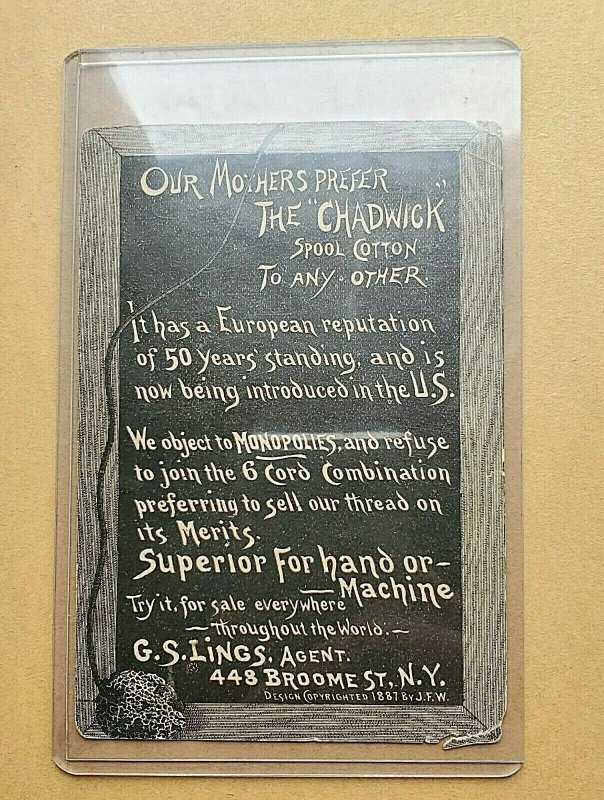 OUR MOTHERS PREFER
THE "CHADWICK"
SPOOL COTTON
TO ANY · OTHER
It has a European reputation
of 50 years' standing, and is
now being introduced in the U.S.
We object to MONOPOLIES, and refuse
to join the 6 Cord Combination
preferring to sell our thread on
its Merits.
Superior For hand or-
— Machine
Try it, for sale everywhere
— throughout the World. —
G.S. LINGS, AGENT.
448 BROOME ST, N.Y.
DESIGN COPYRIGHTED 1887 BY J.F.W.